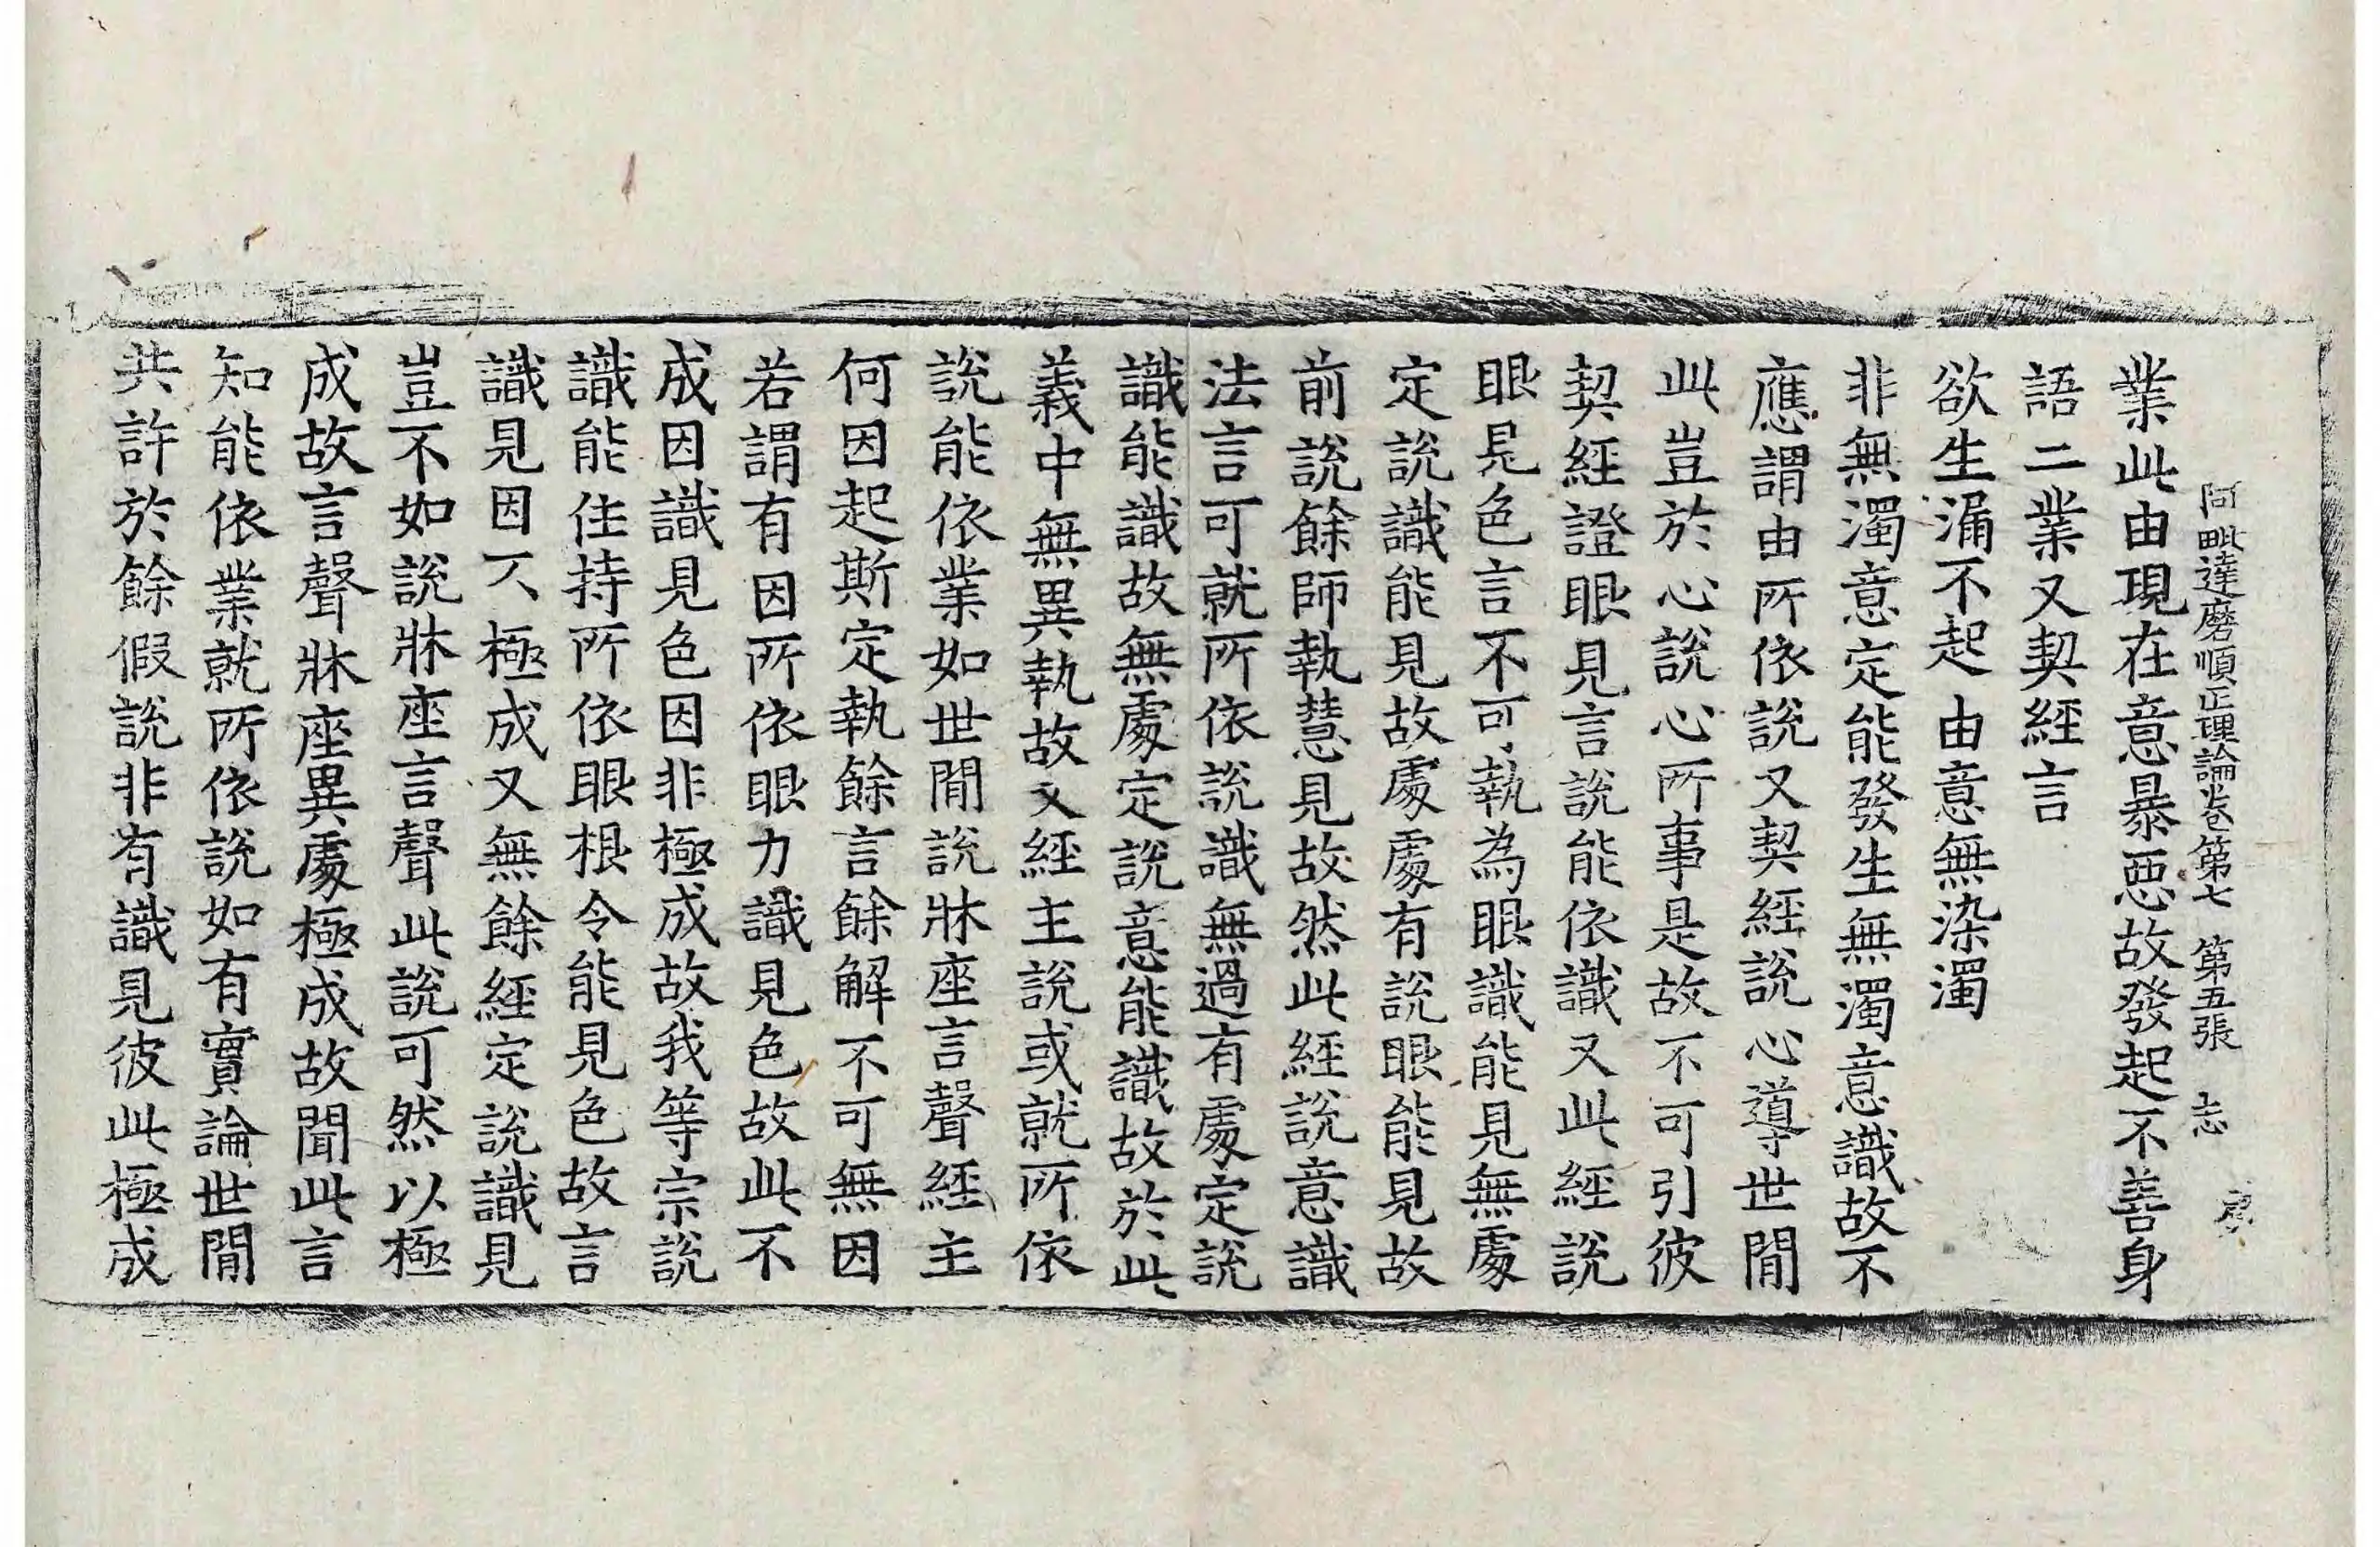 阿毗達磨順正理論卷第七 第五張 志
業此由現在意暴惡故發起不善身
語二業又契經言
欲生漏不起 由意無染濁
非無濁意定能發生無濁意識故不
應謂由所依說又契經說心導世間
此豈於心說心所事是故不可引彼
契經證眼見言說能依識又此經說
眼見色言不可執為眼識能見無處
定說識能見故處處有說眼能見故
前說餘師執慧見故然此經說意識
法言可就所依說識無過有處定說
識能識故無處定說意能識故於此
義中無異執故又經主說或就所依
說能依業如世間說牀座言聲經主
何因起斯定執餘言餘解不可無因
若謂有因所依眼力識見色故此不
成因識見色因非極成故我等宗說
識能住持所依眼根令能見色故言
識見因不極成又無餘經定說識見
豈不如說牀座言聲此說可然以極
成故言聲牀座異處極成故聞此言
知能依業就所依說如有實論世間
共許於餘假說非有識見彼此極成